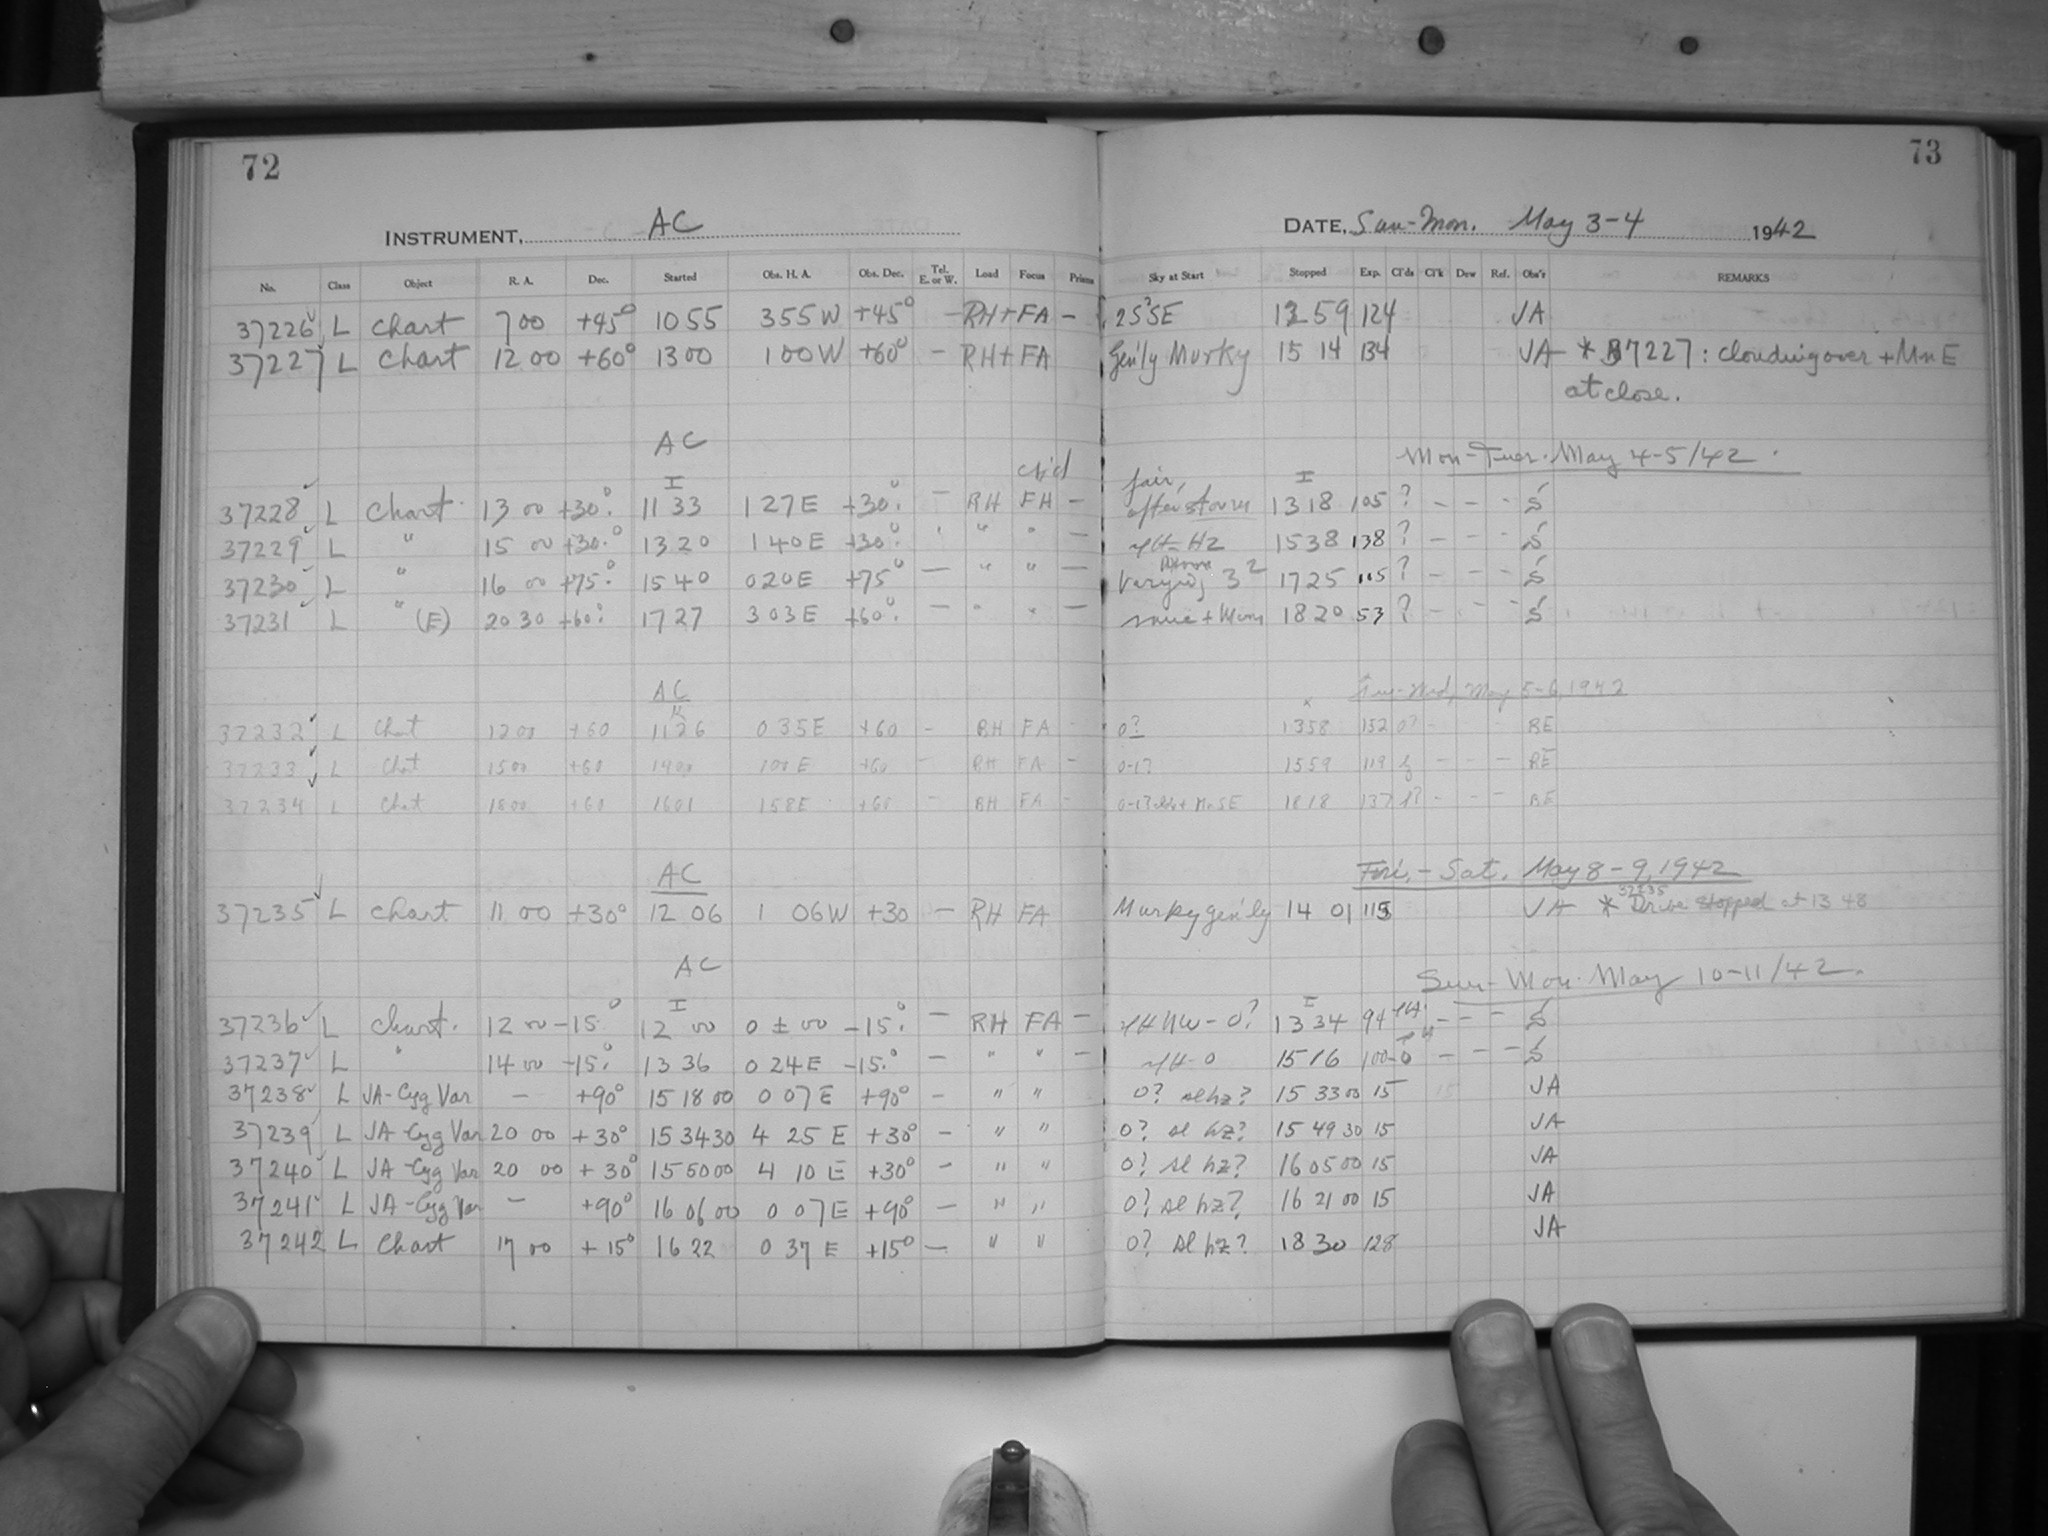 72
73
INSTRUMENT, AC
DATE, Sun-Mon. May 3-4 1942
No. Class Object R. A. Dec. Started Obs. H. A. Obs. Dec. Tel. E. or W. Load Focus Prisms Sky at Start Stopped Exp. Cl'ds Cl'k Dew Ref. Obs'r REMARKS
37226 L Chart 7 00 +45° 10 55 355 W +45° - RH+ FA - 2S?SE 12 59 124 JA
37227 L Chart 12 00 +60° 13 00 1 00 W +60° - RH+ FA Gen'ly Murky 15 14 134 JA * 37227: clouding over + Mn E
at close.
AC
Mon-Tues. May 4-5/42.
37228 L Chart. 13 00 +30°. 11 33 1 27 E +30°. - RH FH - fair, after storm 13 18 105 ? - - - S
37229 L " 15 00 +30.° 13 20 1 40 E +30.° " " " - 15 38 138 ? - - - S
37230 L " 16 00 +75.° 15 40 0 20 E +75° - " " - 17 25 105 ? - - - S
37231 L " (E) 20 30 +60° 17 27 3 03 E +60°. - " " - same + Moon 18 20 53 ? - - - S
AC
Tues-Wed, May 5-6, 1942
37232 L Chart 12 00 +60 11 26 0 35 E +60 - RH FA - 0? 13 58 152 0? - - - RE
37233 L Chart 15 00 +60 14 00 1 00 E +60 - RH FA - 0-1? 15 59 119 - - - RE
37234 L Chart 18 00 +60 16 01 1 58 E +60 - RH FA - 18 18 137 - - - RE
AC
Fri. - Sat. May 8-9, 1942
37235 L Chart 11 00 +30° 12 06 1 06 W +30 - RH FA Murky gen'ly 14 01 115 JA * 37235 Drive stopped at 13 48
AC
Sun-Mon. May 10-11/42.
37236 L Chart. 12 00 -15.° 12 00 0 ± 00 -15.° - RH FA - 13 34 94 - - - S
37237 L " 14 00 -15.° 13 36 0 24 E -15.° - " " - 15 16 100 - - - S
37238 L JA-Cyg Var - +90° 15 18 00 0 07 E +90° - " " 0? sl hz? 15 33 00 15 JA
37239 L JA-Cyg Var 20 00 +30° 15 34 30 4 25 E +30° - " " 0? sl hz? 15 49 30 15 JA
37240 L JA-Cyg Var 20 00 +30° 15 50 00 4 10 E +30° - " " 0? sl hz? 16 05 00 15 JA
37241 L JA-Cyg Var - +90° 16 06 00 0 07 E +90° - " " 0? sl hz? 16 21 00 15 JA
37242 L Chart 17 00 +15° 16 22 0 37 E +15° - " " 0? sl hz? 18 30 128 JA